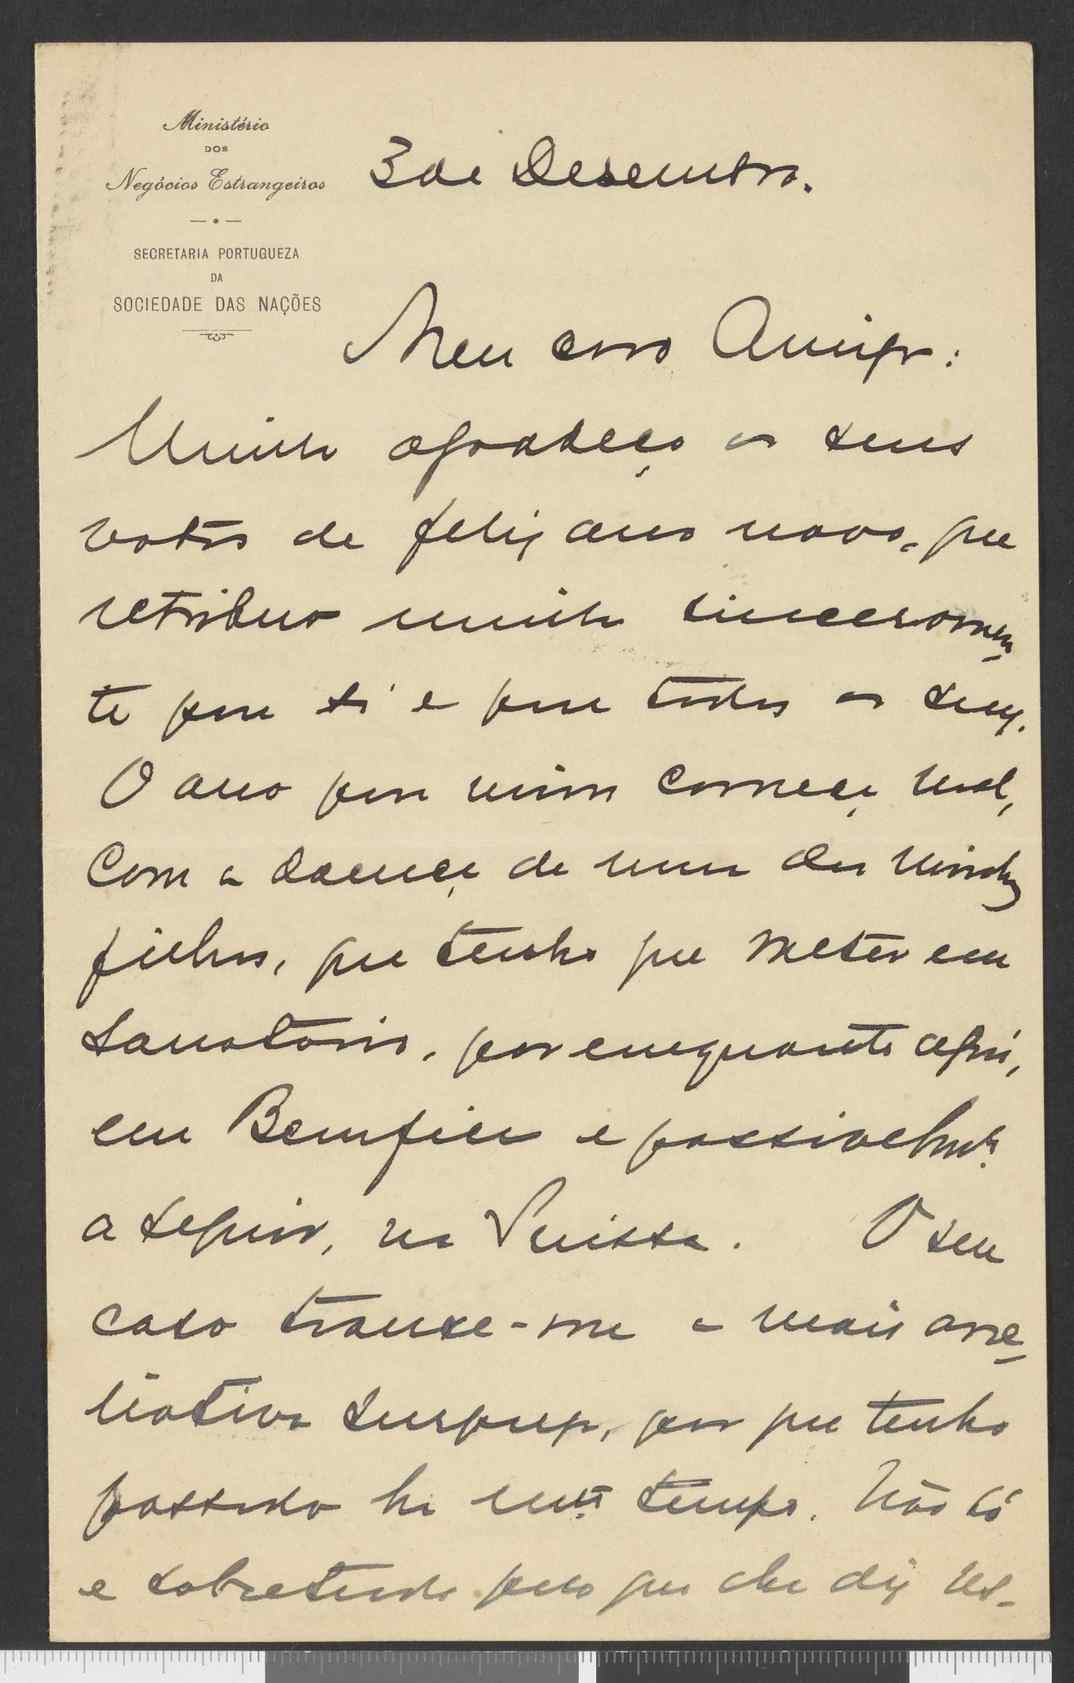 Ministério
DOS
Negócios Estrangeiros
SECRETARIA PORTUGUEZA
DA
SOCIEDADE DAS NAÇÕES
3 de Desembro.
Meu caro Amigo:
Muito agradeço os seus
votos de feliz ano novo, que
retribuo muito sinceramen-
te para si e para todos os seus.
O ano para mim começa mal,
com a doença de um dos minhos
filhos, que tenho que meter em
Sanatorio, por emquanto aqui,
em Bemfica e possivelmte
a seguir, na Suissa. O seu
caso trouxe-me a mais arre-
liativa surpresa, por que tenho
passado ha mto tempo. Não só
e sobretudo pelo que lhe diz res-